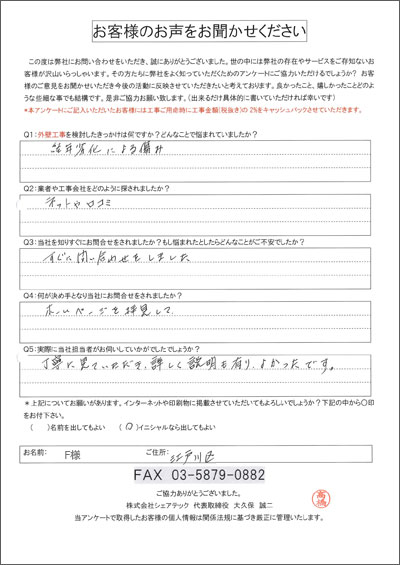 お客様のお声をお聞かせください
この度は弊社にお問い合わせをいただき、誠にありがとうございました。世の中には弊社の存在やサービスをご存知ないお
客様が沢山いらっしゃいます。その方たちに弊社をよく知っていただくためのアンケートにご協力いただけるでしょうか？ お客
様のご意見をお聞かせいただき今後の活動に反映させていただきたいと考えております。良かったこと、嬉しかったことどのよ
うな些細な事でも結構です。是非ご協力お願い致します。（出来るだけ具体的に書いていただければ幸いです）
*本アンケートにご記入いただいたお客様には工事ご用命時に工事金額（税抜き）の 2%をキャッシュバックさせていただきます。
Q1：外壁工事を検討したきっかけは何ですか？どんなことで悩まれていましたか？
劣化による
Q2：業者や工事会社をどのように探されましたか？
ネットや口コミ
Q3：当社を知りすぐにお問合せをされましたか？もし悩まれたとしたらどんなことがご不安でしたか？
すぐに問い合わせをしました
Q4：何が決め手となり当社にお問合せをされましたか？
ホームページを拝見して
Q5：実際に当社担当者がお伺いしていかがでしたでしょうか？
丁寧に見ていただき、詳しく説明も有り、よかったです。
* 上記についてお願いがあります。インターネットや印刷物に掲載させていただいてもよろしいでしょうか？下記の中から〇印
をお付下さい。
（　）名前を出してもよい （〇）イニシャルなら出してもよい
お名前： F様 ご住所： 江戸川区
FAX 03-5879-0882
ご協力ありがとうございました。
株式会社シェアテック 代表取締役 大久保 誠二
高橋
当アンケートで取得したお客様の個人情報は関係法規に基づき厳正に管理いたします。